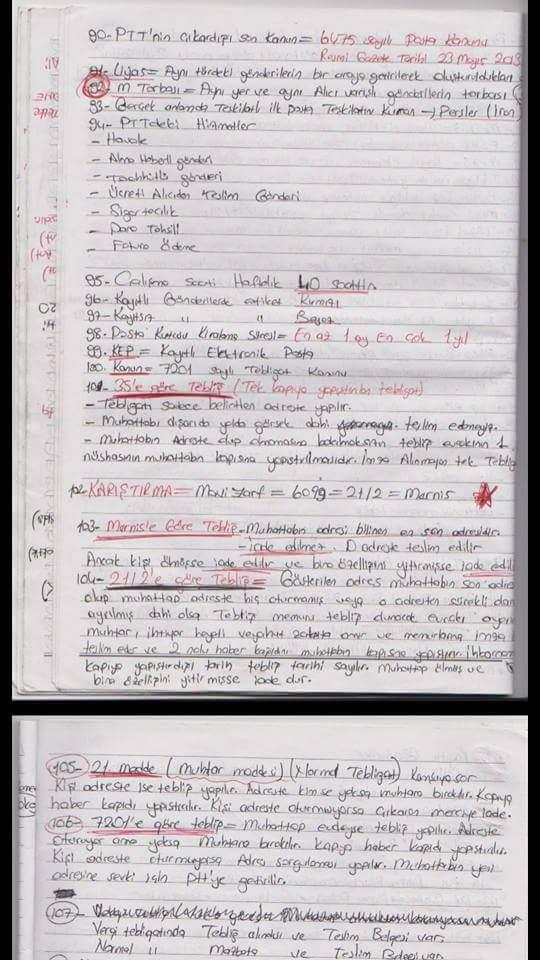 90- PTT'nin Çıkardığı son kanun = 6475 sayılı Posta Kanunu
Resmi Gazete Tarihi 23 Mayıs 2013
91- Liyas = Aynı türdeki gönderilerin bir araya getirilerek oluşturuldukları
92- M Torbası = Aynı yer ve aynı Alıcı varışlı gönderilerin torbası
93- Gerçek anlamda Teşkilatlı ilk posta Teşkilatını Kuran → Persler (İran)
94- PTTdeki Hizmetler
- Havale
- Alma Haberli gönderi
- Taahhütlü gönderi
- Ücreti Alıcıdan Teslim Gönderi
- Sigortacılık
- Para Tahsili
- Fatura Ödeme
95- Çalışma saati Haftalık 40 saattir
96- Kayıtlı Gönderilerde etiket Kırmızı
97- Kayıtsız " " Beyaz
98- Posta Kutusu Kiralama Süresi = En az 1 ay En çok 1 yıl
99- KEP = Kayıtlı Elektronik Posta
100- Kanun = 7201 sayılı Tebligat Kanunu
101- 35'e göre Tebliğ (Tek kapıya yapıştırılan tebligat)
- Tebligatı sadece belirtilen adreste yapılır.
- Muhattabı dışarıda yolda görsek dahi teslim edemeyiz.
- Muhattabın Adreste olup olmamasına bakılmaksızın tebliğ evrakının 1
nüshasının muhattabın kapısına yapıştırılmasıdır. İmza Alınmayan tek Tebliğ
102- KARIŞTIRMA = Mavi zarf = 6099 = 21/2 = Mernis
103- Mernis'e Göre Tebliğ - Muhattabın adresi bilinen en son adresidir.
- iade edilmez. O adreste teslim edilir
Ancak Kişi ölmüşse iade edilir ve bina özelliğini yitirmişse iade edilir
104- 21/2'e göre Tebliğ = Gösterilen adres muhattabın son adresi
olup muhattap adreste hiç oturmamış veya o adresten sürekli olarak
ayrılmış dahi olsa Tebliğ memuru tebliğ olunacak evrakı
muhtar, ihtiyar heyeti veyahut zabıta amir ve memurlarına imza
teslim eder ve 2 nolu haber kağıdını muhattabın kapısına yapıştırır. İhbarnamenin
kapıya yapıştırıldığı tarih tebliğ tarihi sayılır. Muhattap ölmüş ve
bina özelliğini yitirmişse iade olur.
105- 21. madde (Muhtar maddesi) (Normal Tebligat)
Kişi adreste ise tebliğ yapılır. Adreste kimse yoksa muhtara bırakılır. Kapıya
haber kağıdı yapıştırılır. Kişi adreste oturmuyorsa Çıkaran merciye iade.
106- 7201'e göre tebliğ = Muhattap evdeyse tebliğ yapılır. Adreste
oturuyor ama yoksa Muhtara bırakılır. Kapıya haber kağıdı yapıştırılır.
Kişi adreste oturmuyorsa Adres sorgulaması yapılır. Muhattabın yeni
adresine sevki için PTT'ye getirilir.
107-
Vergi tebligatında Tebliğ alındısı ve Teslim Belgesi var.
Normal " Mazbata ve Teslim Belgesi var